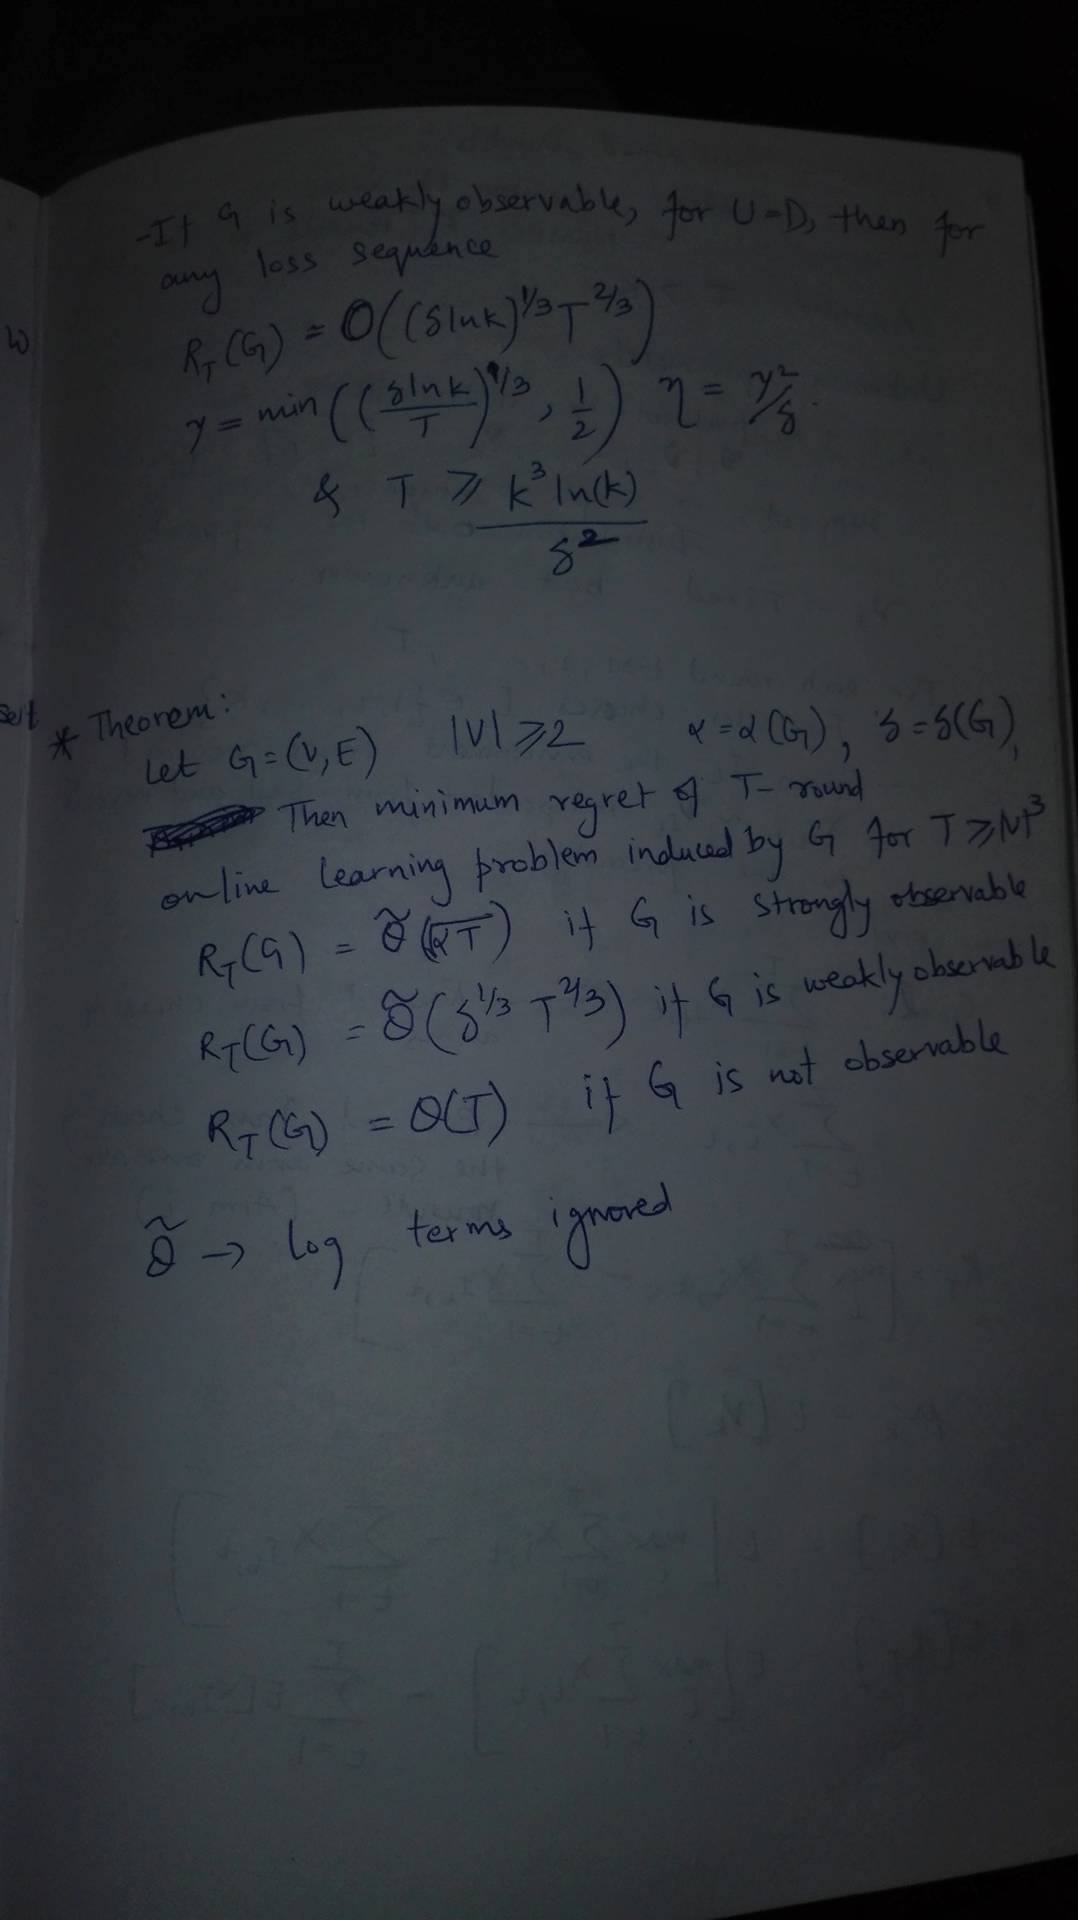 -If G is weakly observable, for U=D, then for
any loss sequence
R_T(G) = O((δlnk)^{1/3} T^{2/3})
γ = min((δlnk/T)^{1/3}, 1/2) η = γ^2/δ.
& T ⩾ k^3 ln(k)/δ^2
* Theorem:
Let G=(V,E) |V|⩾2 α=α(G), δ=δ(G),
Then minimum regret of T-round
online learning problem induced by G for T⩾|V|^3
R_T(G) = Θ̃(√αT) if G is strongly observable
R_T(G) = Θ̃(δ^{1/3} T^{2/3}) if G is weakly observable
R_T(G) = Θ(T) if G is not observable
Θ̃ → log terms ignored